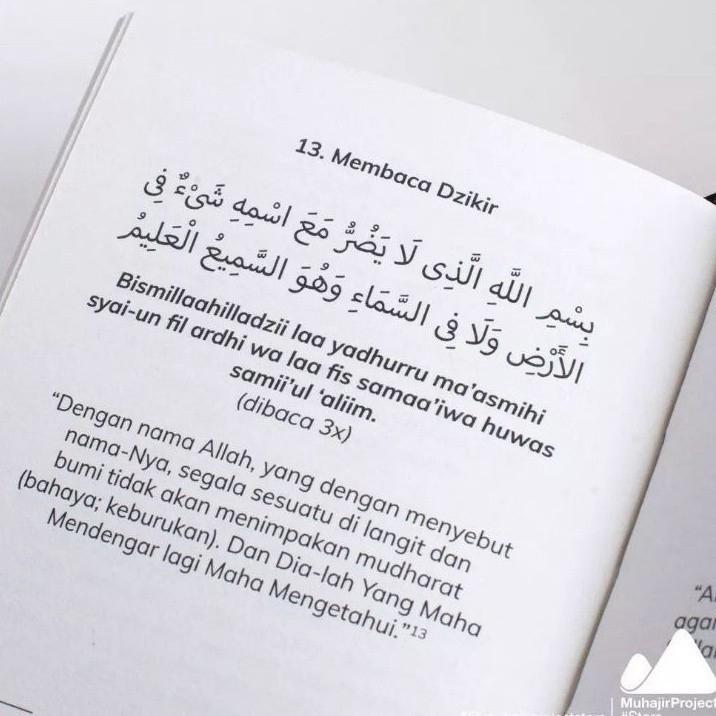 13. Membaca Dzikir
بِسْمِ اللَّهِ الَّذِى لَا يَضُرُّ مَعَ اسْمِهِ شَىْءٌ فِى
الْأَرْضِ وَلَا فِى السَّمَاءِ وَهُوَ السَّمِيعُ الْعَلِيمُ
Bismillaahilladzii laa yadhurru ma'asmihi
syai-un fil ardhi wa laa fis samaa'iwa huwas
samii'ul 'aliim.
(dibaca 3x)
"Dengan nama Allah, yang dengan menyebut
nama-Nya, segala sesuatu di langit dan
bumi tidak akan menimpakan mudharat
(bahaya; keburukan). Dan Dia-lah Yang Maha
Mendengar lagi Maha Mengetahui."13
MuhajirProject